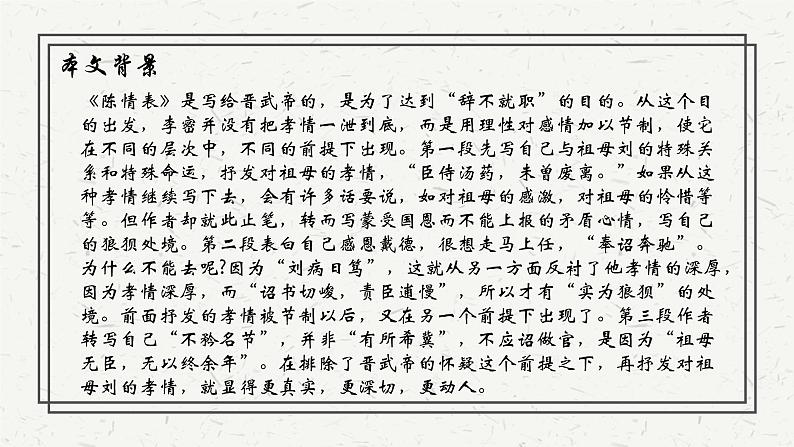 本文背景
《陈情表》是写给晋武帝的，是为了达到“辞不就职”的目的。从这个目
的出发，李密并没有把孝情一泄到底，而是用理性对感情加以节制，使它
在不同的层次中，不同的前提下出现。第一段先写自己与祖母刘的特殊关
系和特殊命运，抒发对祖母的孝情，“臣侍汤药，未曾废离。”如果从这
种孝情继续写下去，会有许多话要说，如对祖母的感激，对祖母的怜惜等
等。但作者却就此止笔，转而写蒙受国恩而不能上报的矛盾心情，写自己
的狼狈处境。第二段表白自己感恩戴德，很想走马上任，“奉诏奔驰”。
为什么不能去呢?因为“刘病日笃”，这就从另一方面反衬了他孝情的深厚，
因为孝情深厚，而“诏书切峻，责臣逋慢”，所以才有“实为狼狈”的处
境。前面抒发的孝情被节制以后，又在另一个前提下出现了。第三段作者
转写自己“不矜名节”，并非“有所希冀”，不应诏做官，是因为“祖母
无臣，无以终余年”。在排除了晋武帝的怀疑这个前提之下，再抒发对祖
母刘的孝情，就显得更真实，更深切，更动人。